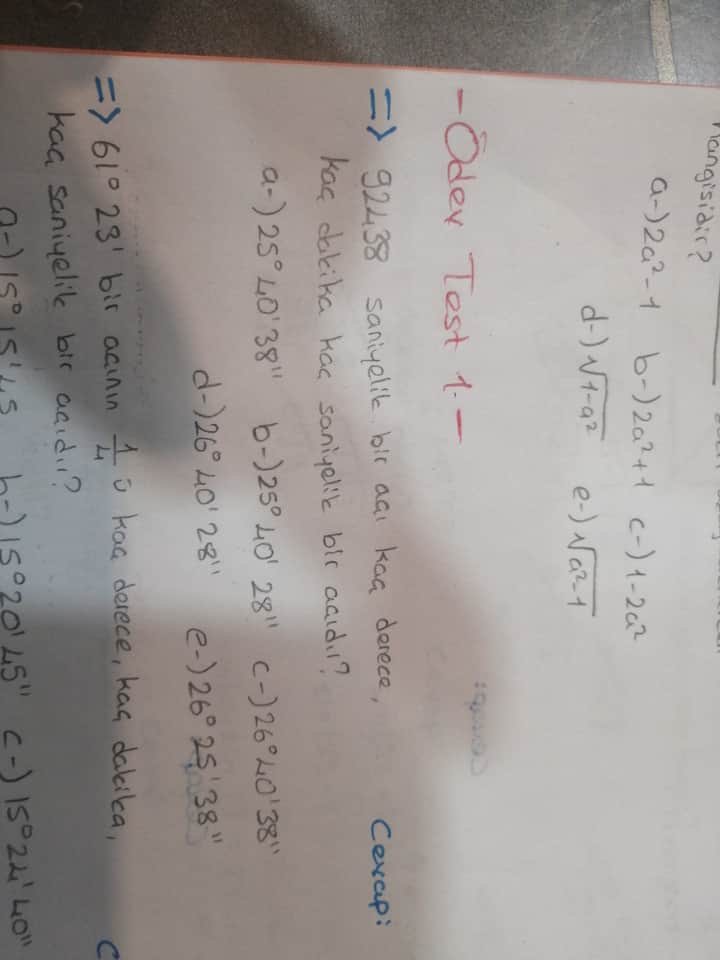 hangisidir?
a-) 2a²-1 b-) 2a²+1 c-) 1-2a²
d-) √1-a² e-) √a²-1
- Ödev Test 1. -
=> 92438 saniyelik bir açı kaç derece,
kaç dakika kaç saniyelik bir açıdır? Cevap:
a-) 25° 40' 38" b-) 25° 40' 28" c-) 26° 40' 38"
d-) 26° 40' 28" e-) 26° 25' 38"
=> 61° 23' bir açının 1/4 ü kaç derece, kaç dakika,
kaç saniyelik bir açıdır? C
a-) 15° 15' 45 b-) 15° 20' 45" c-) 15° 24' 40"